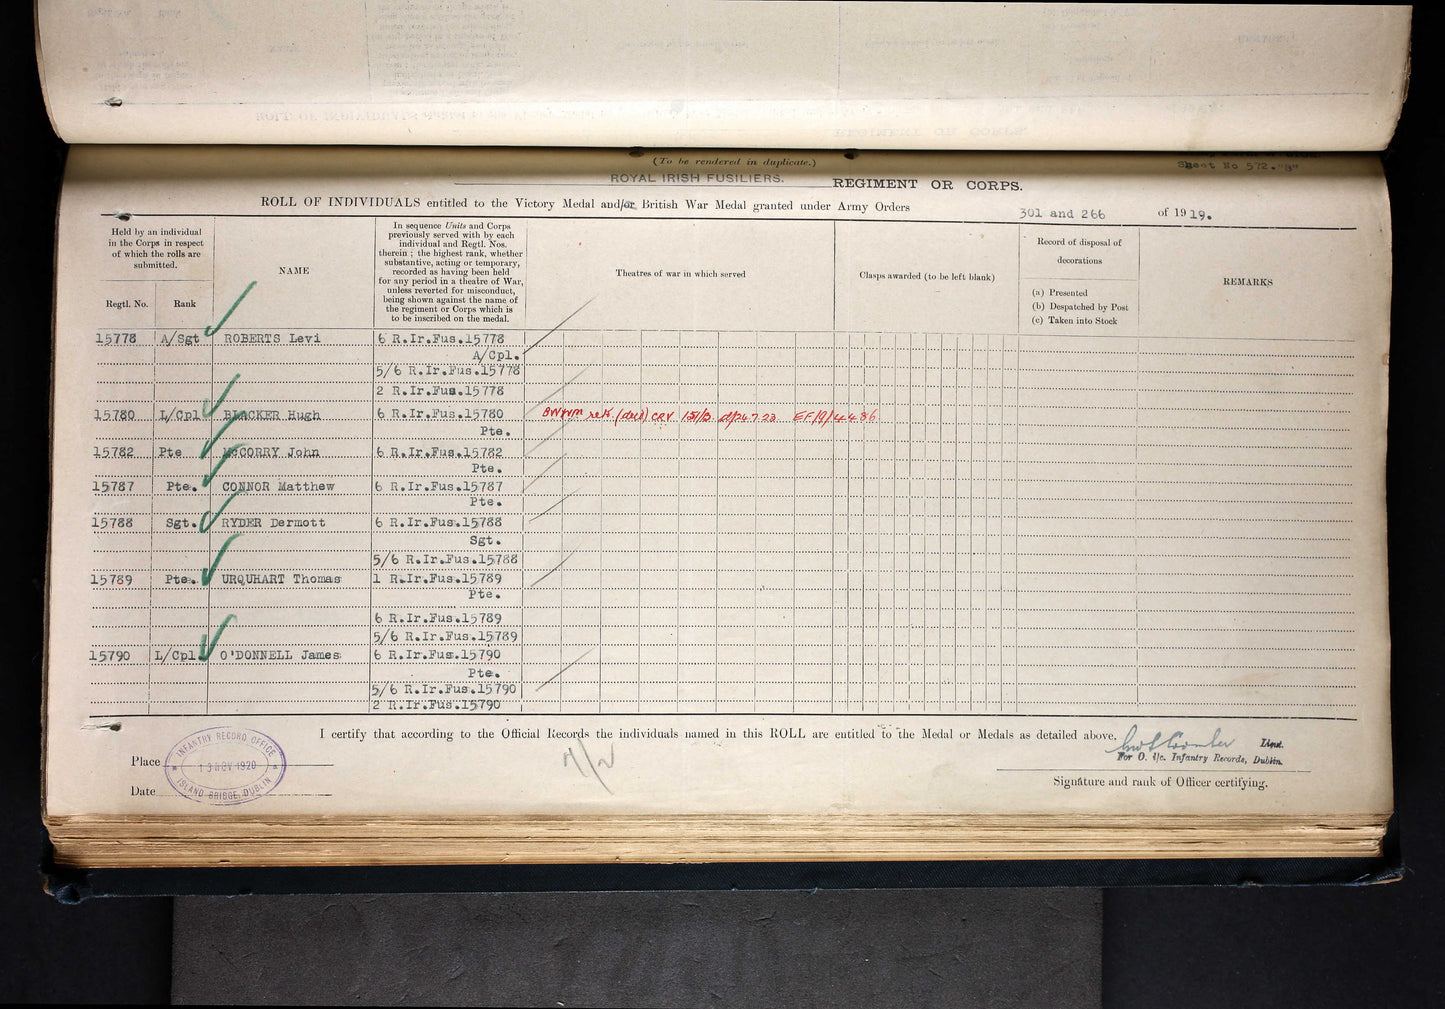 Sheet No 572."B"
(To be rendered in duplicate.)
ROYAL IRISH FUSILIERS. REGIMENT OR CORPS.
ROLL OF INDIVIDUALS entitled to the Victory Medal and/or British War Medal granted under Army Orders 301 and 266 of 1919.
Held by an individual
in the Corps in respect
of which the rolls are
submitted.
Regtl. No. Rank
NAME
In sequence Units and Corps
previously served with by each
individual and Regtl. Nos.
therein ; the highest rank, whether
substantive, acting or temporary,
recorded as having been held
for any period in a theatre of War,
unless reverted for misconduct,
being shown against the name of
the regiment or Corps which is
to be inscribed on the medal.
Theatres of war in which served
Clasps awarded (to be left blank)
Record of disposal of
decorations
(a) Presented
(b) Despatched by Post
(c) Taken into Stock
REMARKS
15778 A/Sgt ROBERTS Levi 6 R.Ir.Fus.15778
A/Cpl.
5/6 R.Ir.Fus.15778
2 R.Ir.Fus.15778
15780 L/Cpl BLACKER Hugh 6 R.Ir.Fus.15780 (decd) CRV 24.7.23 EF/9/4486
Pte.
15782 Pte McCORRY John 6 R.Ir.Fus.15782
Pte.
15787 Pte. CONNOR Matthew 6 R.Ir.Fus.15787
Pte.
15788 Sgt. RYDER Dermott 6 R.Ir.Fus.15788
Sgt.
5/6 R.Ir.Fus.15788
15789 Pte. URQUHART Thomas 1 R.Ir.Fus.15789
Pte.
6 R.Ir.Fus.15789
5/6 R.Ir.Fus.15789
15790 L/Cpl O'DONNELL James 6 R.Ir.Fus.15790
Pte.
5/6 R.Ir.Fus.15790
2 R.Ir.Fus.15790
I certify that according to the Official Records the individuals named in this ROLL are entitled to the Medal or Medals as detailed above.
Lieut.
For O. i/c. Infantry Records, Dublin.
Signature and rank of Officer certifying.
Place
Date
INFANTRY RECORD OFFICE
13 NOV 1920
ISLAND BRIDGE, DUBLIN